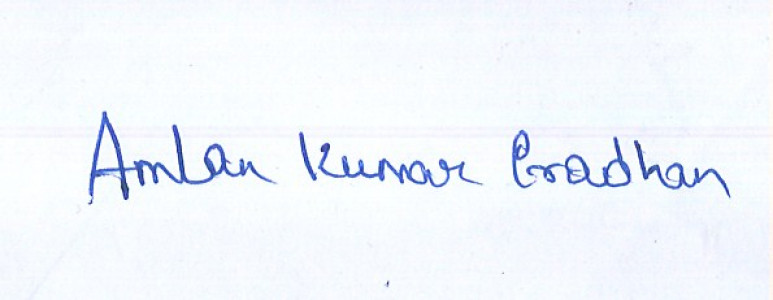 Amlan Kumar Pradhan